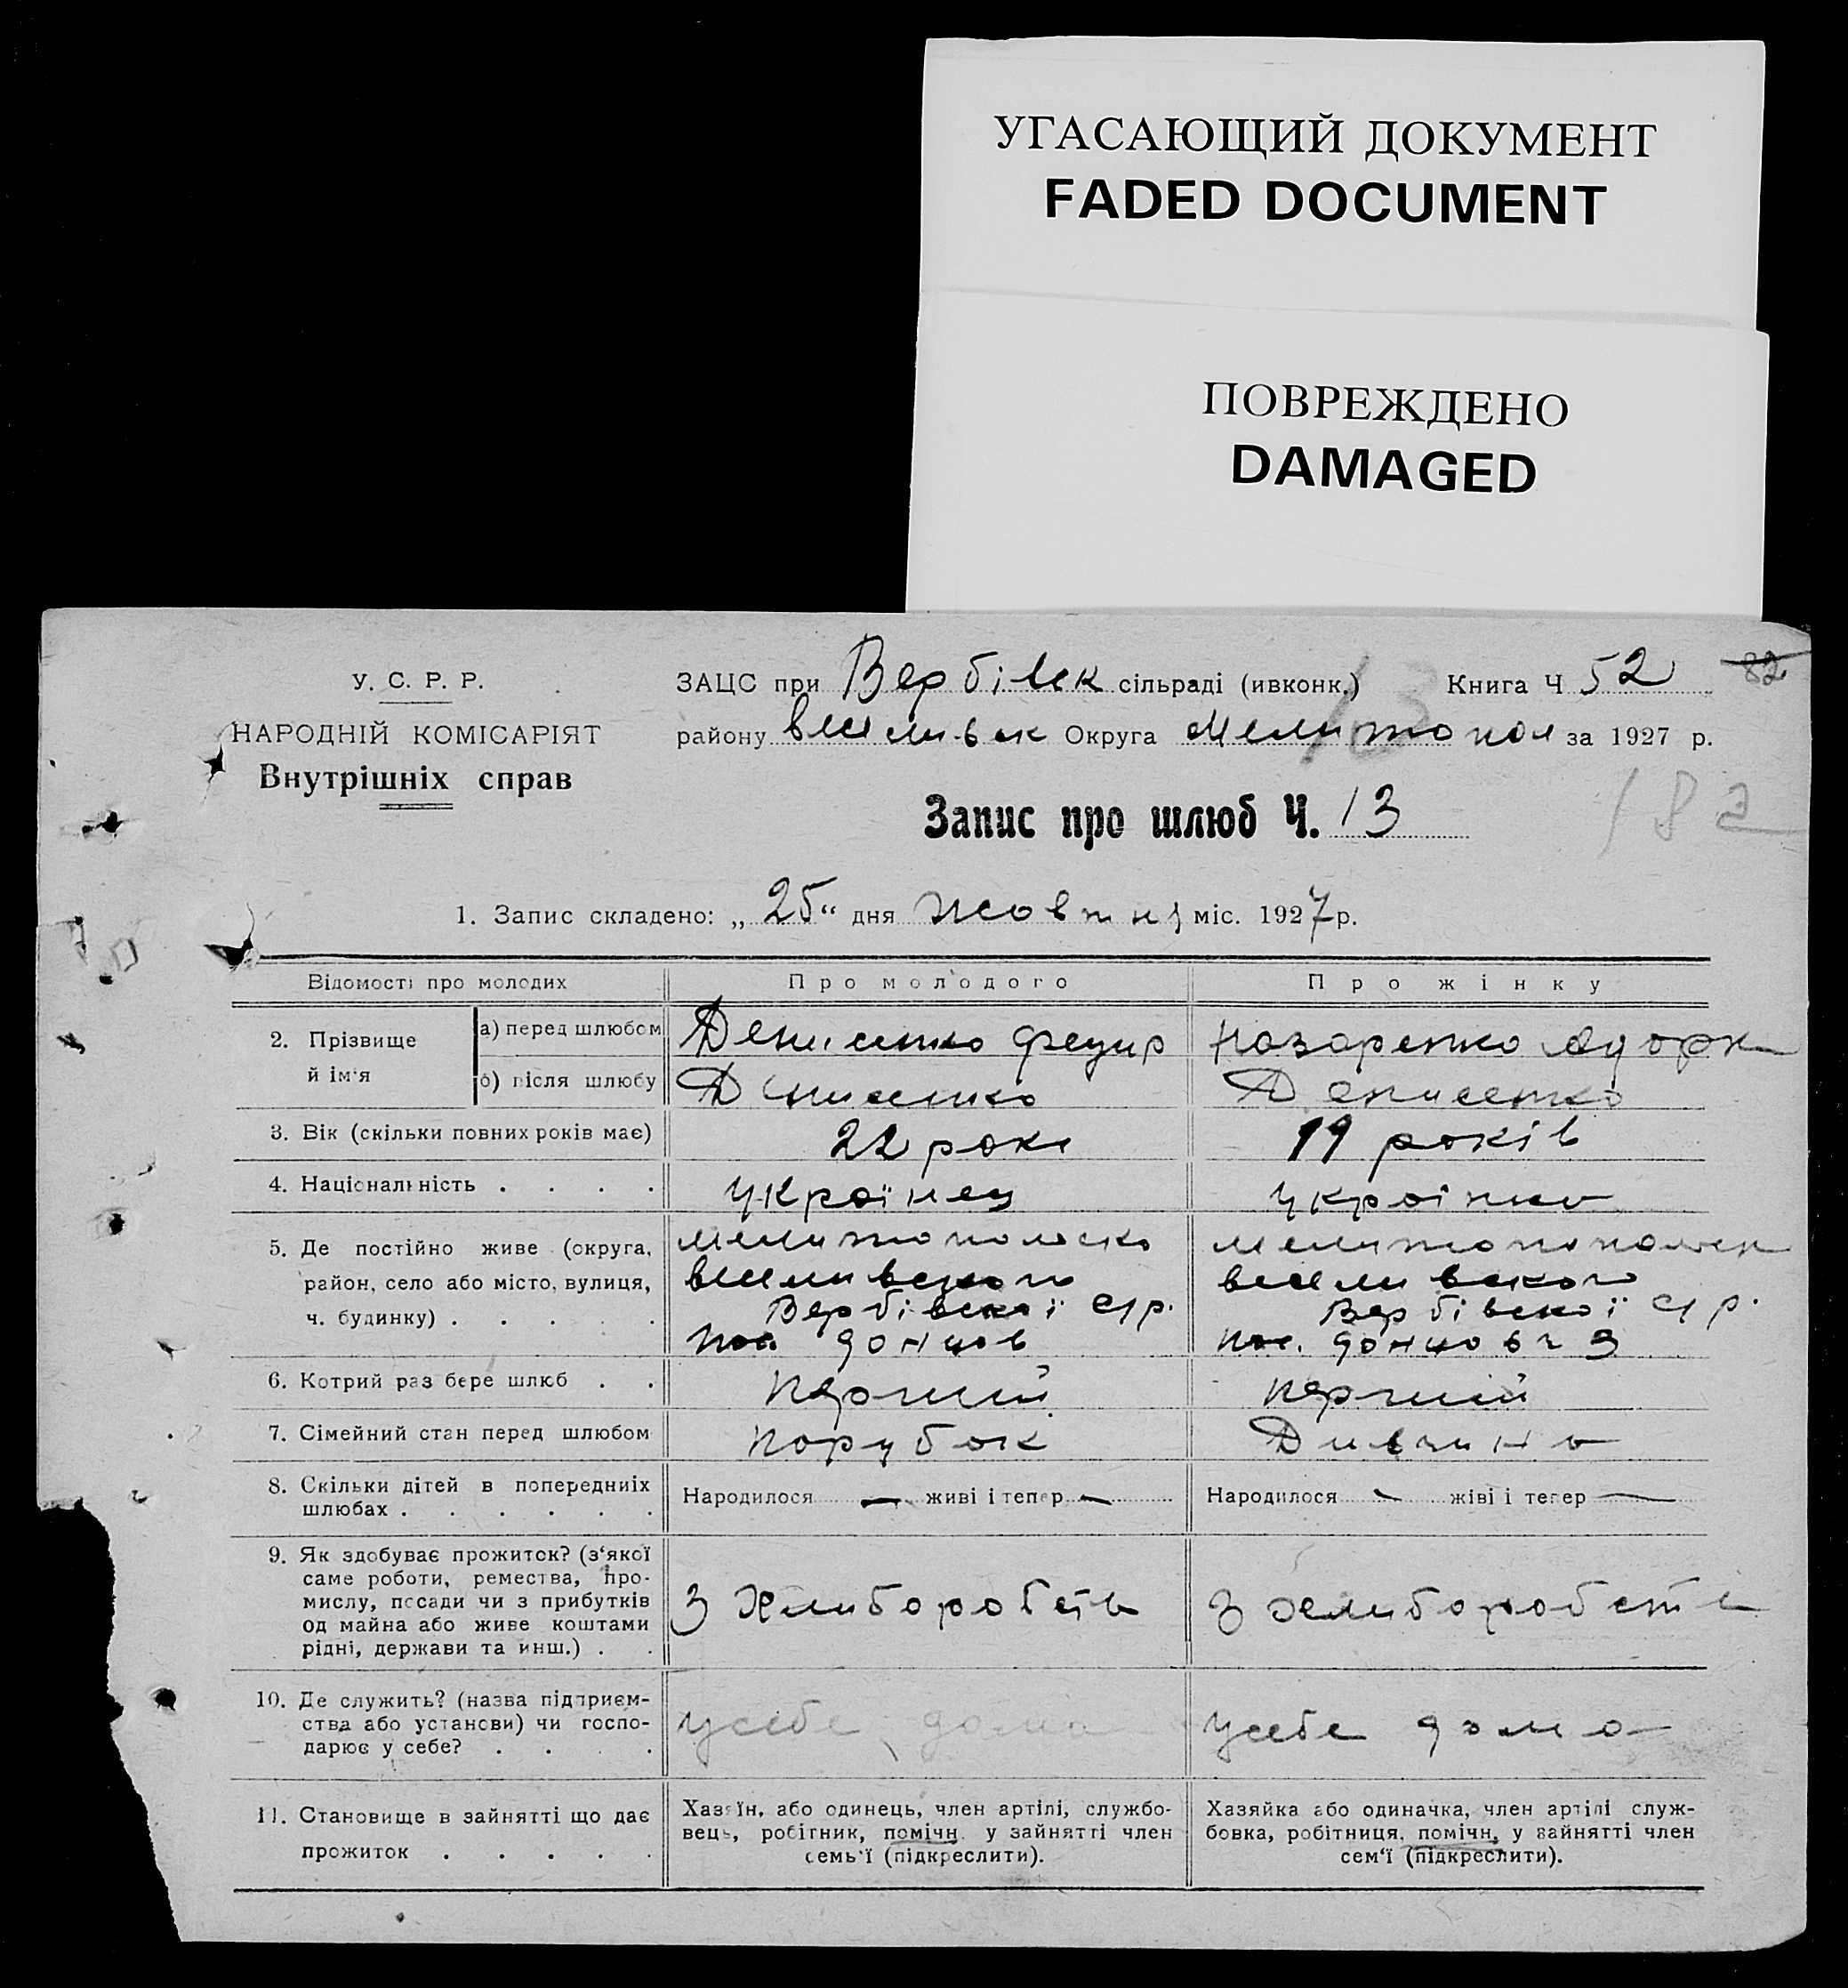 УГАСАЮЩИЙ ДОКУМЕНТ
FADED DOCUMENT
ПОВРЕЖДЕНО
DAMAGED
У. С. Р. Р.
НАРОДНІЙ КОМІСАРІЯТ
Внутрішніх справ
ЗАЦС при Вербівск сільраді (ивконк.) Книга Ч 52 82
району Округа Мелитопол за 1927 р.
13
Запис про шлюб Ч. 13
182
1. Запис складено: „ 25 “ дня жовтня міс. 1927 р.
Відомості про молодих Про молодого Про жінку
2. Прізвище й ім'я
а) перед шлюбом Денисенко Федир Назаренко
б) після шлюбу Денисенко Денисенко
3. Вік (скільки повних років має) 22 роки 19 років
4. Національність . . . . українец українка
5. Де постійно живе (округа, район, село або місто, вулиця, ч. будинку) . . . . .
Вербівскої с/р.
пос. донцов
Вербівскої с/р.
пос.
6. Котрий раз бере шлюб . . перший перший
7. Сімейний стан перед шлюбом порубок Дивчина
8. Скільки дітей в попередниіх шлюбах . . . . . .
Народилося — живі і тепер —
Народилося — жіві і тепер —
9. Як здобуває прожиток? (з‘якої
саме роботи, ремества, про-
мислу, посади чи з прибутків
од майна або живе коштами
рідні, держави та инш.) . .
З Хлиборобств
З хлиборобств
10. Де служить? (назва підприєм-
ства або установи) чи госпо-
дарює у себе? . . . .
усебе дома
усебе дома
11. Становище в зайнятті що дає
прожиток . . . . .
Хазяїн, або одинець, член артілі, службо-
вець, робітник, помічн. у зайнятті член
семь'ї (підкреслити).
Хазяйка або одиначка, член артілі служ-
бовка, робітниця, помічн, у зайнятті член
сем‘ї (підкреслити).